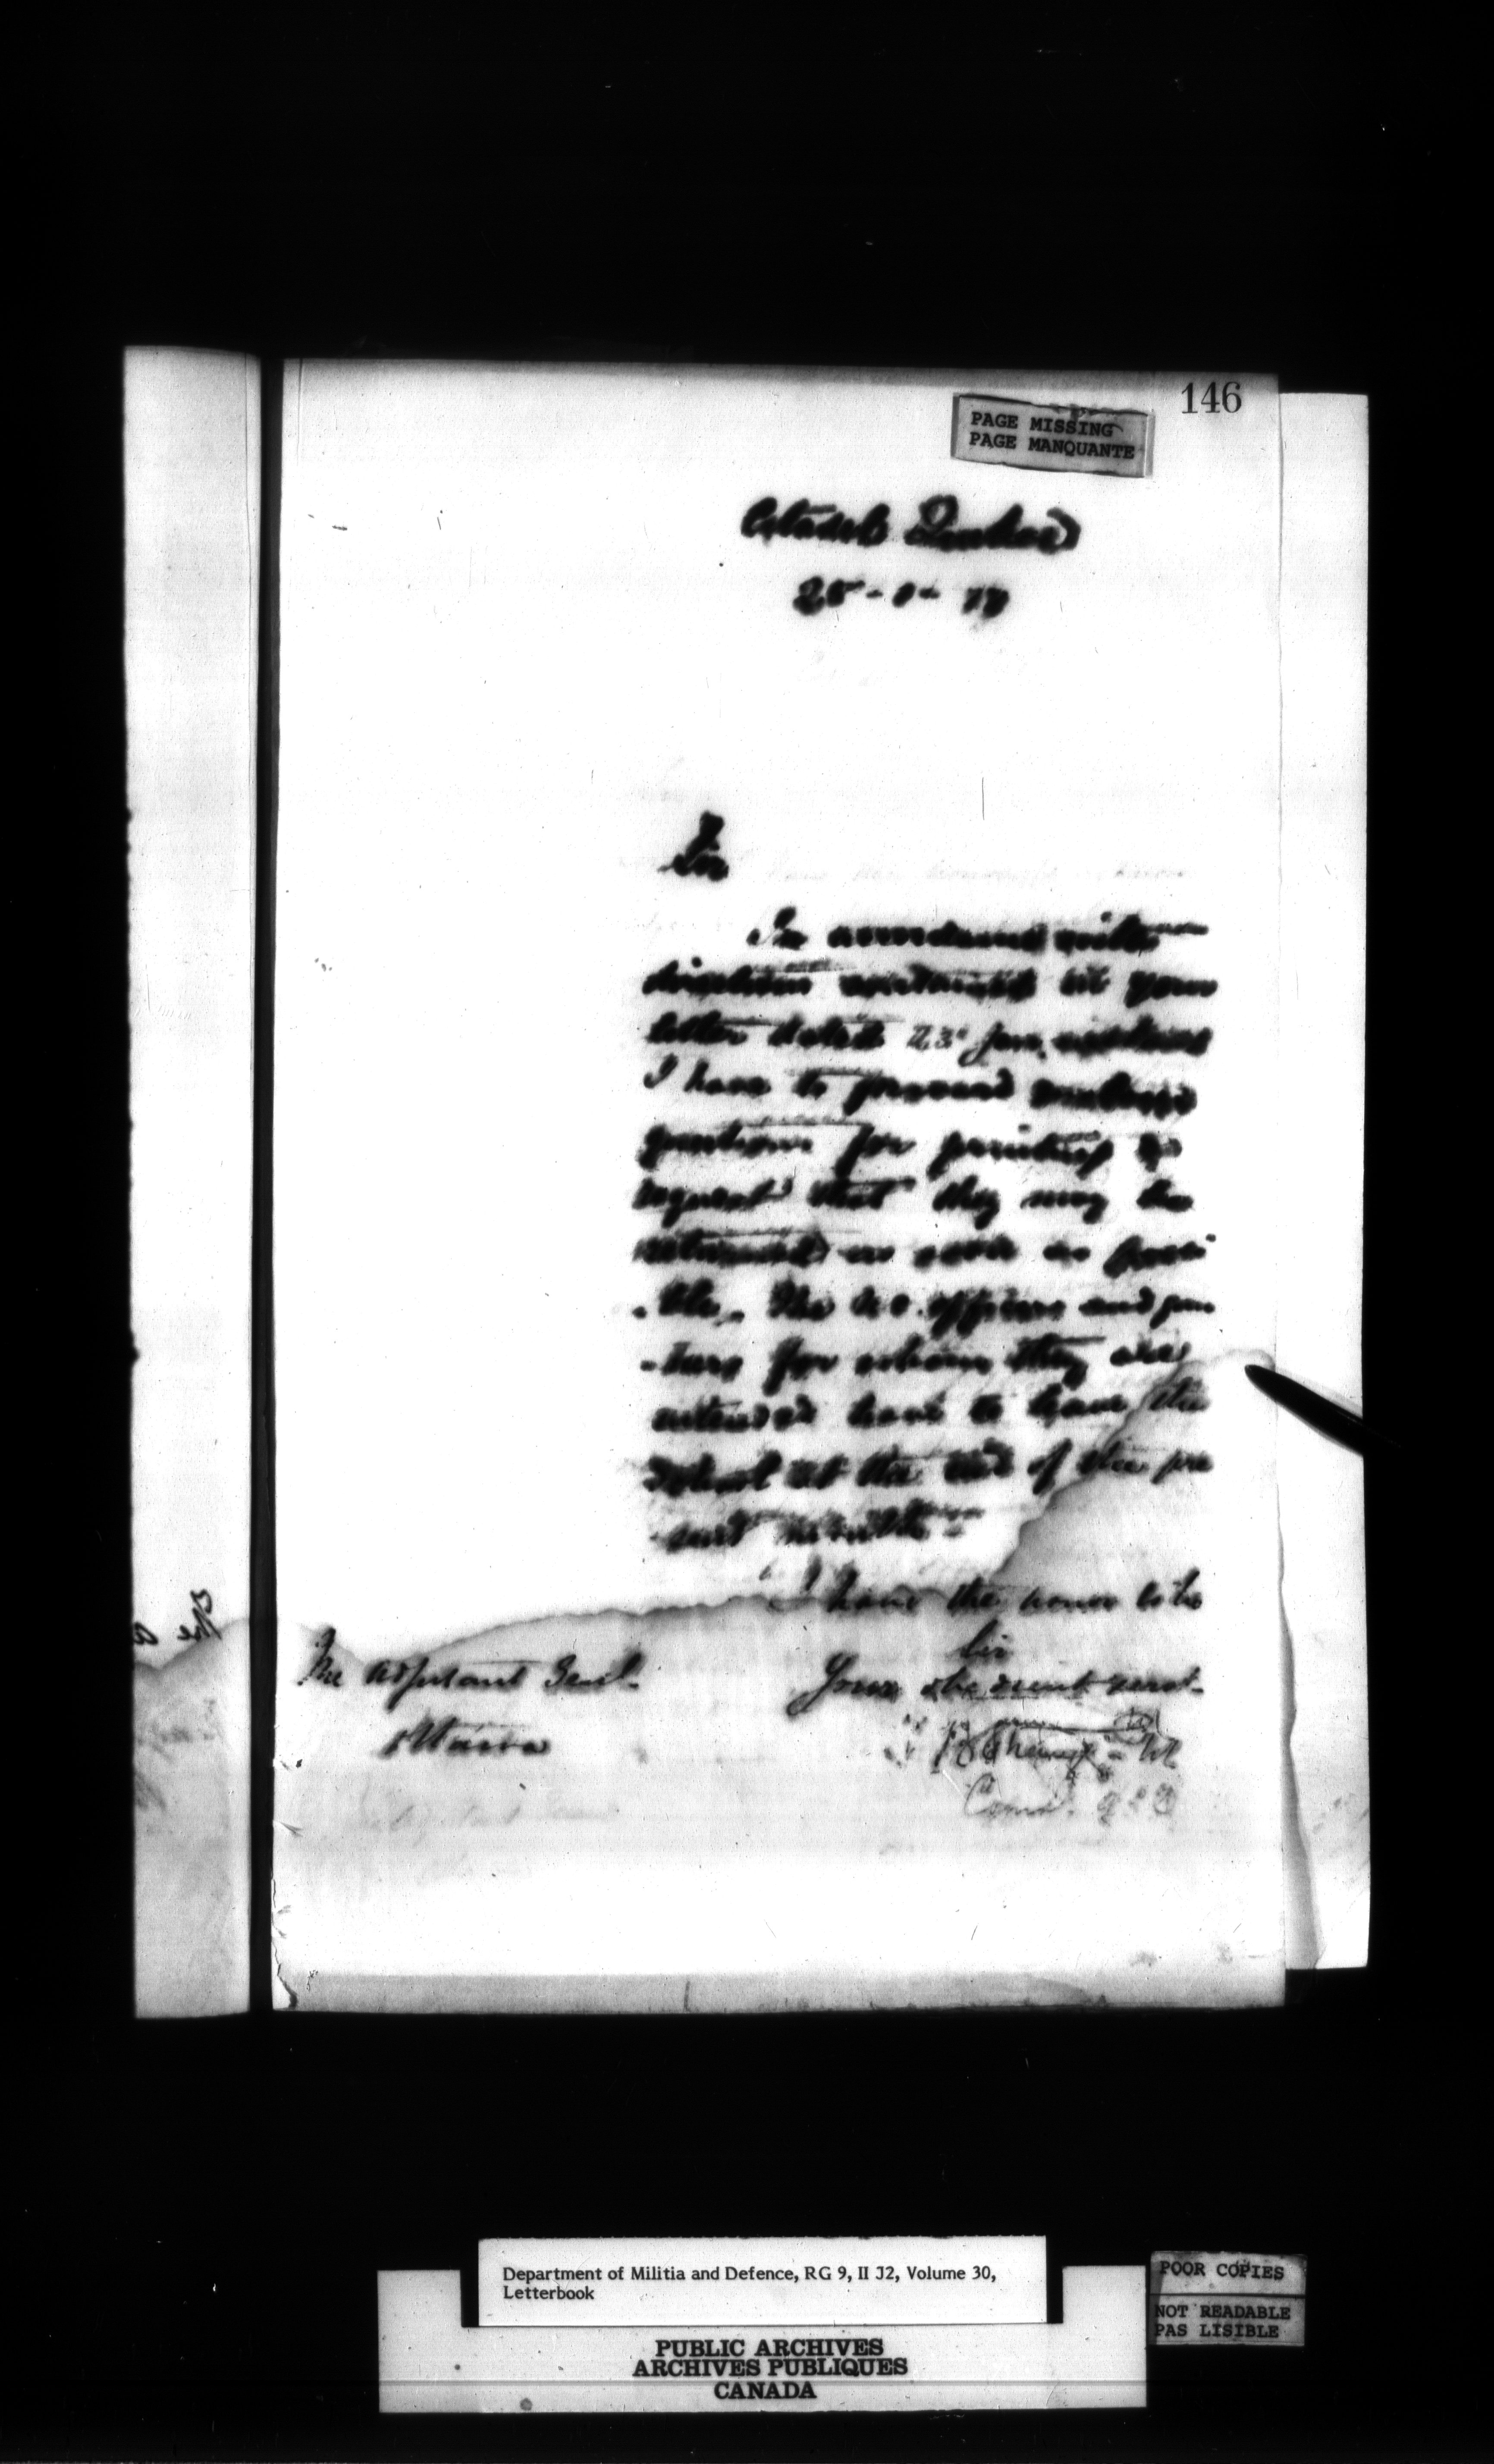 146
PAGE MISSING
PAGE MANQUANTE
Citadel Quebec
Sir
In accordance with
directions contained in your
letter dated 23d Jan.
I have to forward enclosed
questions for printing &
request that they may be
returned as soon as possi
-ble. The n.c. officers and gun
-ners for whom they are
intended have to leave the
School at the end of the pre
sent month -
I have the honor to be
Sir
Your obedient servt.
The Adjutant Genl.
Ottawa
Comdt.
The
Department of Militia and Defence, RG 9, II J2, Volume 30,
Letterbook
PUBLIC ARCHIVES
ARCHIVES PUBLIQUES
CANADA
POOR COPIES
NOT READABLE
PAS LISIBLE